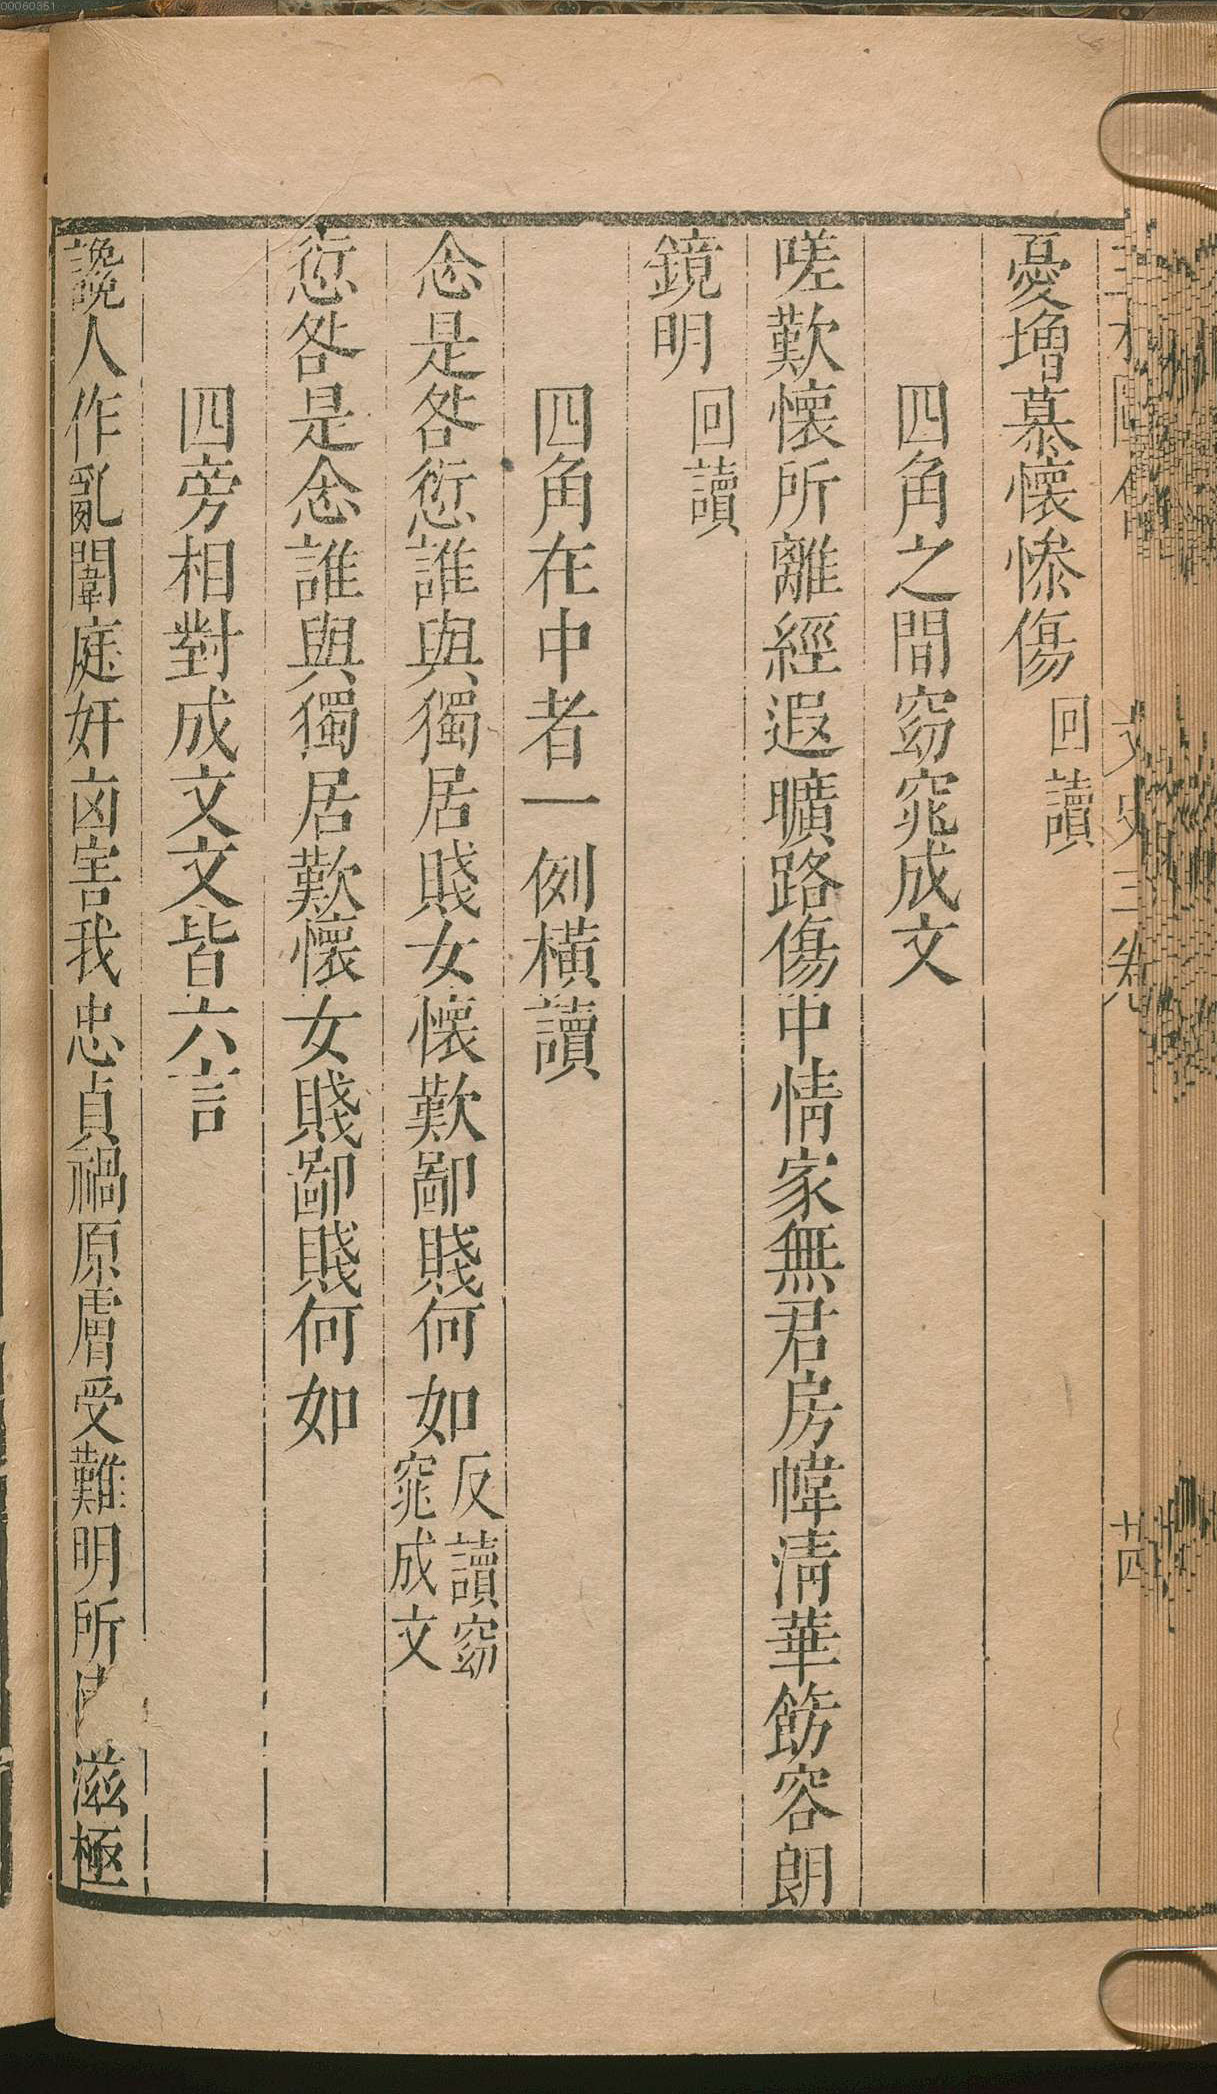 憂增慕懷慘傷回讀
四角之間窈窕成文
嗟歎懷所離經遐曠路傷中情家無君房幃淸華飭容朗
鏡明回讀
四角在中者一例橫讀
念是咎愆誰與獨居賤女懷歎鄙賤何如反讀窈
窕成文
愆咎是念誰與獨居歎懷女賤鄙賤何如
四旁相對成文文皆六言
讒人作亂闈庭奸凶害我忠貞禍原膚受難明所
滋極
文史三卷
廿四
00060351